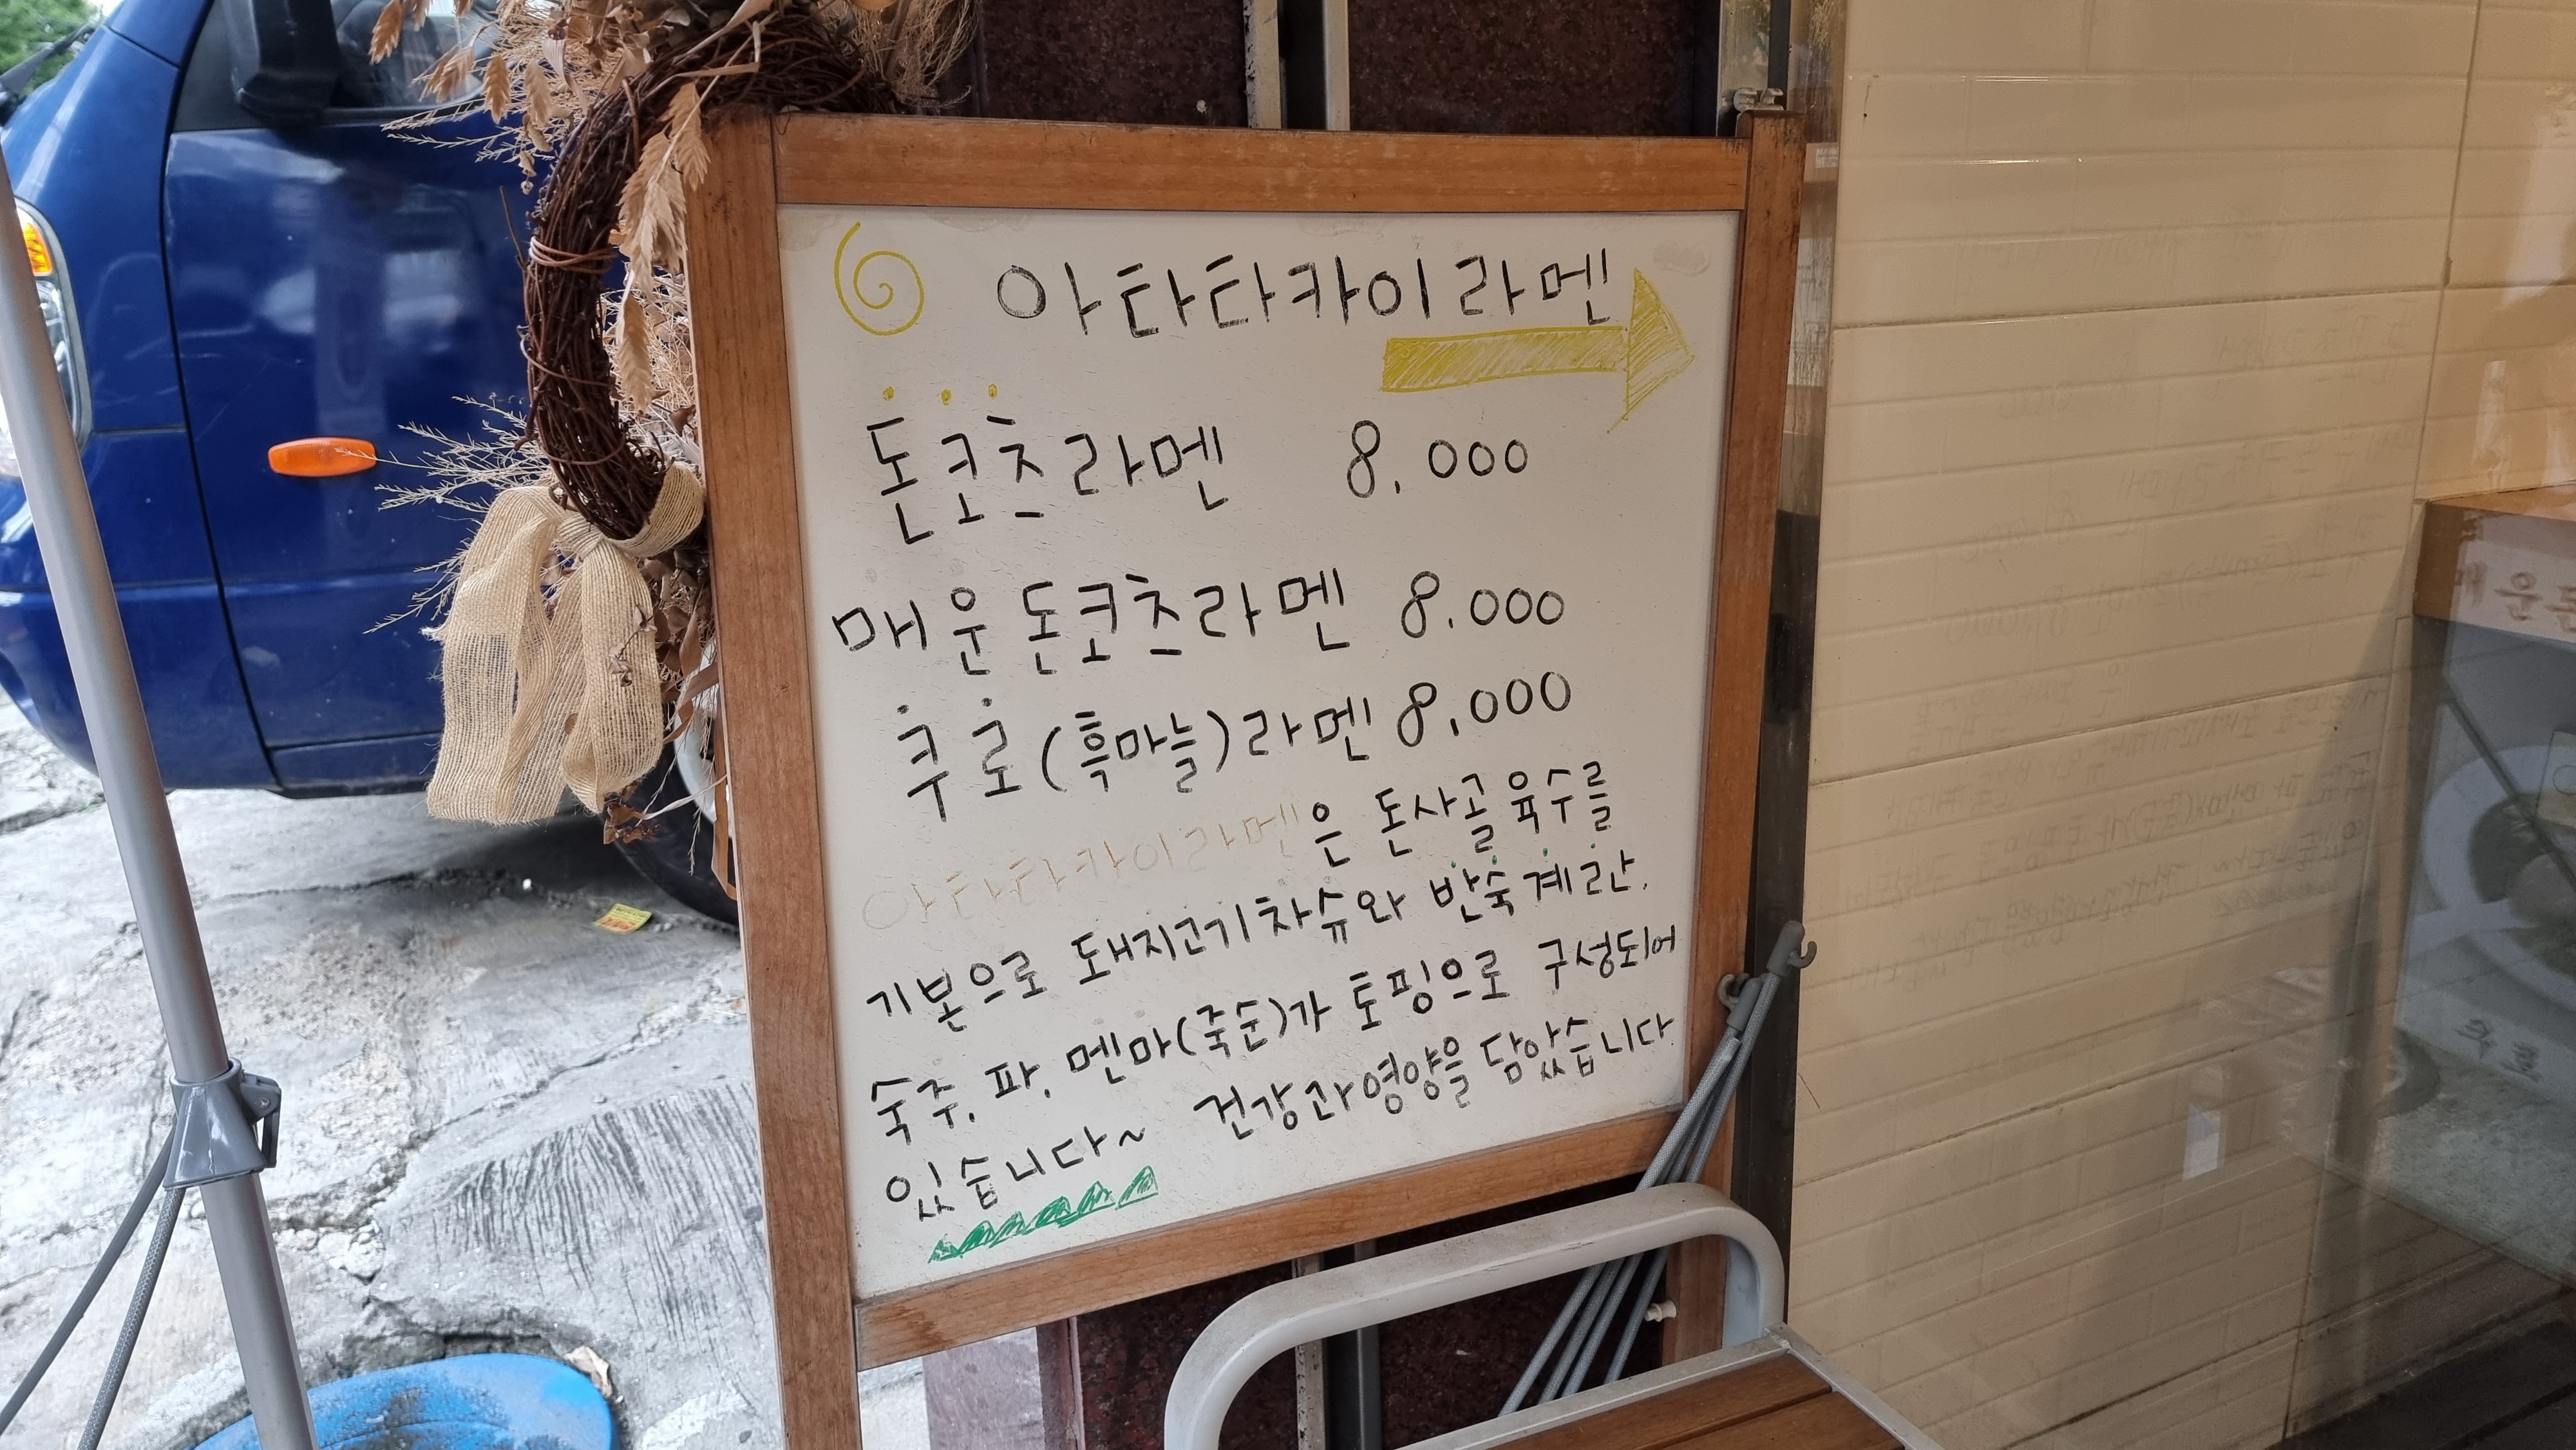 아타타카이라멘
돈코츠라멘 8,000
매운돈코츠라멘 8.000
쿠로(흑마늘)라멘 8,000
아타타카이라멘은 돈사골 육수를
기본으로 돼지고기차슈와 반숙계란,
숙주, 파, 멘마(죽순)가 토핑으로 구성되어
있습니다~ 건강과영양을 담았습니다